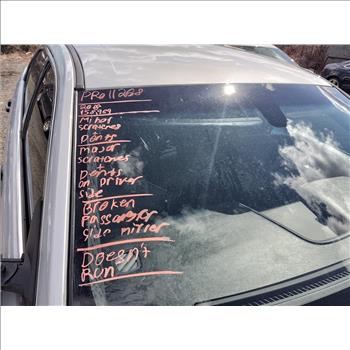 PRO11268
2008
Minor
scratches
+
Dents
major
scratches
+
Dents
on Driver
side
Broken
Passanger
side mirrer
Doesn't
Run